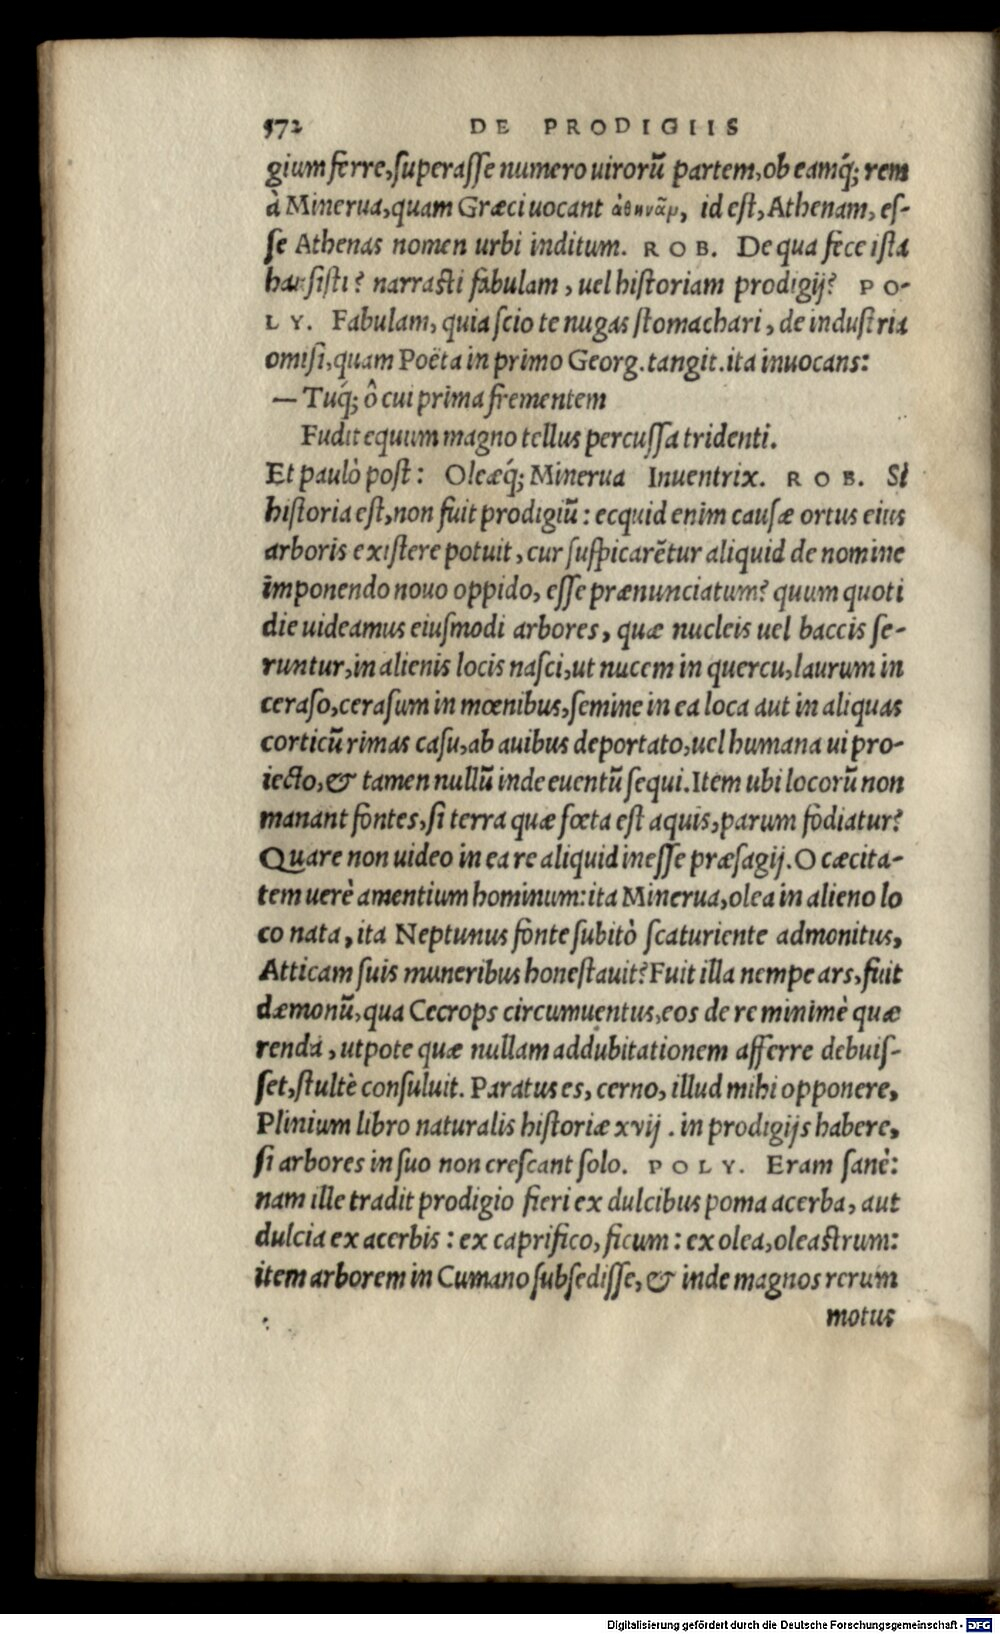 572 DE PRODIGIIS
gium ferre, superasse numero uirorũ partem, ob eamq́; rem
à Minerua, quam Græci uocant ἀθηνᾶν, id est, Athenam, es-
se Athenas nomen urbi inditum. ROB. De qua fece ista
hausisti? narrasti fabulam, uel historiam prodigij? PO-
LY. Fabulam, quia scio te nugas stomachari, de industria
omisi, quam Poëta in primo Georg. tangit. ita inuocans:
— Tuq́; ô cui prima frementem
Fudit equum magno tellus percussa tridenti.
Et paulò post: Oleæq́; Minerua Inuentrix. ROB. Si
historia est, non fuit prodigiũ: ecquid enim causæ ortus eius
arboris existere potuit, cur suspicarẽtur aliquid de nomine
imponendo nouo oppido, esse prænunciatum? quum quoti
die uideamus eiusmodi arbores, quæ nucleis uel baccis se-
runtur, in alienis locis nasci, ut nucem in quercu, laurum in
ceraso, cerasum in mœnibus, semine in ea loca aut in aliquas
corticũ rimas casu, ab auibus deportato, uel humana ui pro-
iecto, & tamen nullũ inde euentũ sequi. Item ubi locorũ non
manant fontes, si terra quæ fœta est aquis, parum fodiatur?
Quare non uideo in ea re aliquid inesse præsagij. O cæcita-
tem uerè amentium hominum: ita Minerua, olea in alieno lo
co nata, ita Neptunus fonte subitò scaturiente admonitus,
Atticam suis muneribus honestauit? Fuit illa nempe ars, fuit
dæmonũ, qua Cecrops circumuentus, eos de re minimè quæ
rendá, utpote quæ nullam addubitationem afferre debuis-
set, stultè consuluit. Paratus es, cerno, illud mihi opponere,
Plinium libro naturalis historiæ xvij. in prodigijs habere,
si arbores in suo non crescant solo. POLY. Eram sanè:
nam ille tradit prodigio fieri ex dulcibus poma acerba, aut
dulcia ex acerbis: ex caprifico, ficum: ex olea, oleastrum:
item arborem in Cumano subsedisse, & inde magnos rerum
motus
Digitalisierung gefördert durch die Deutsche Forschungsgemeinschaft - DFG